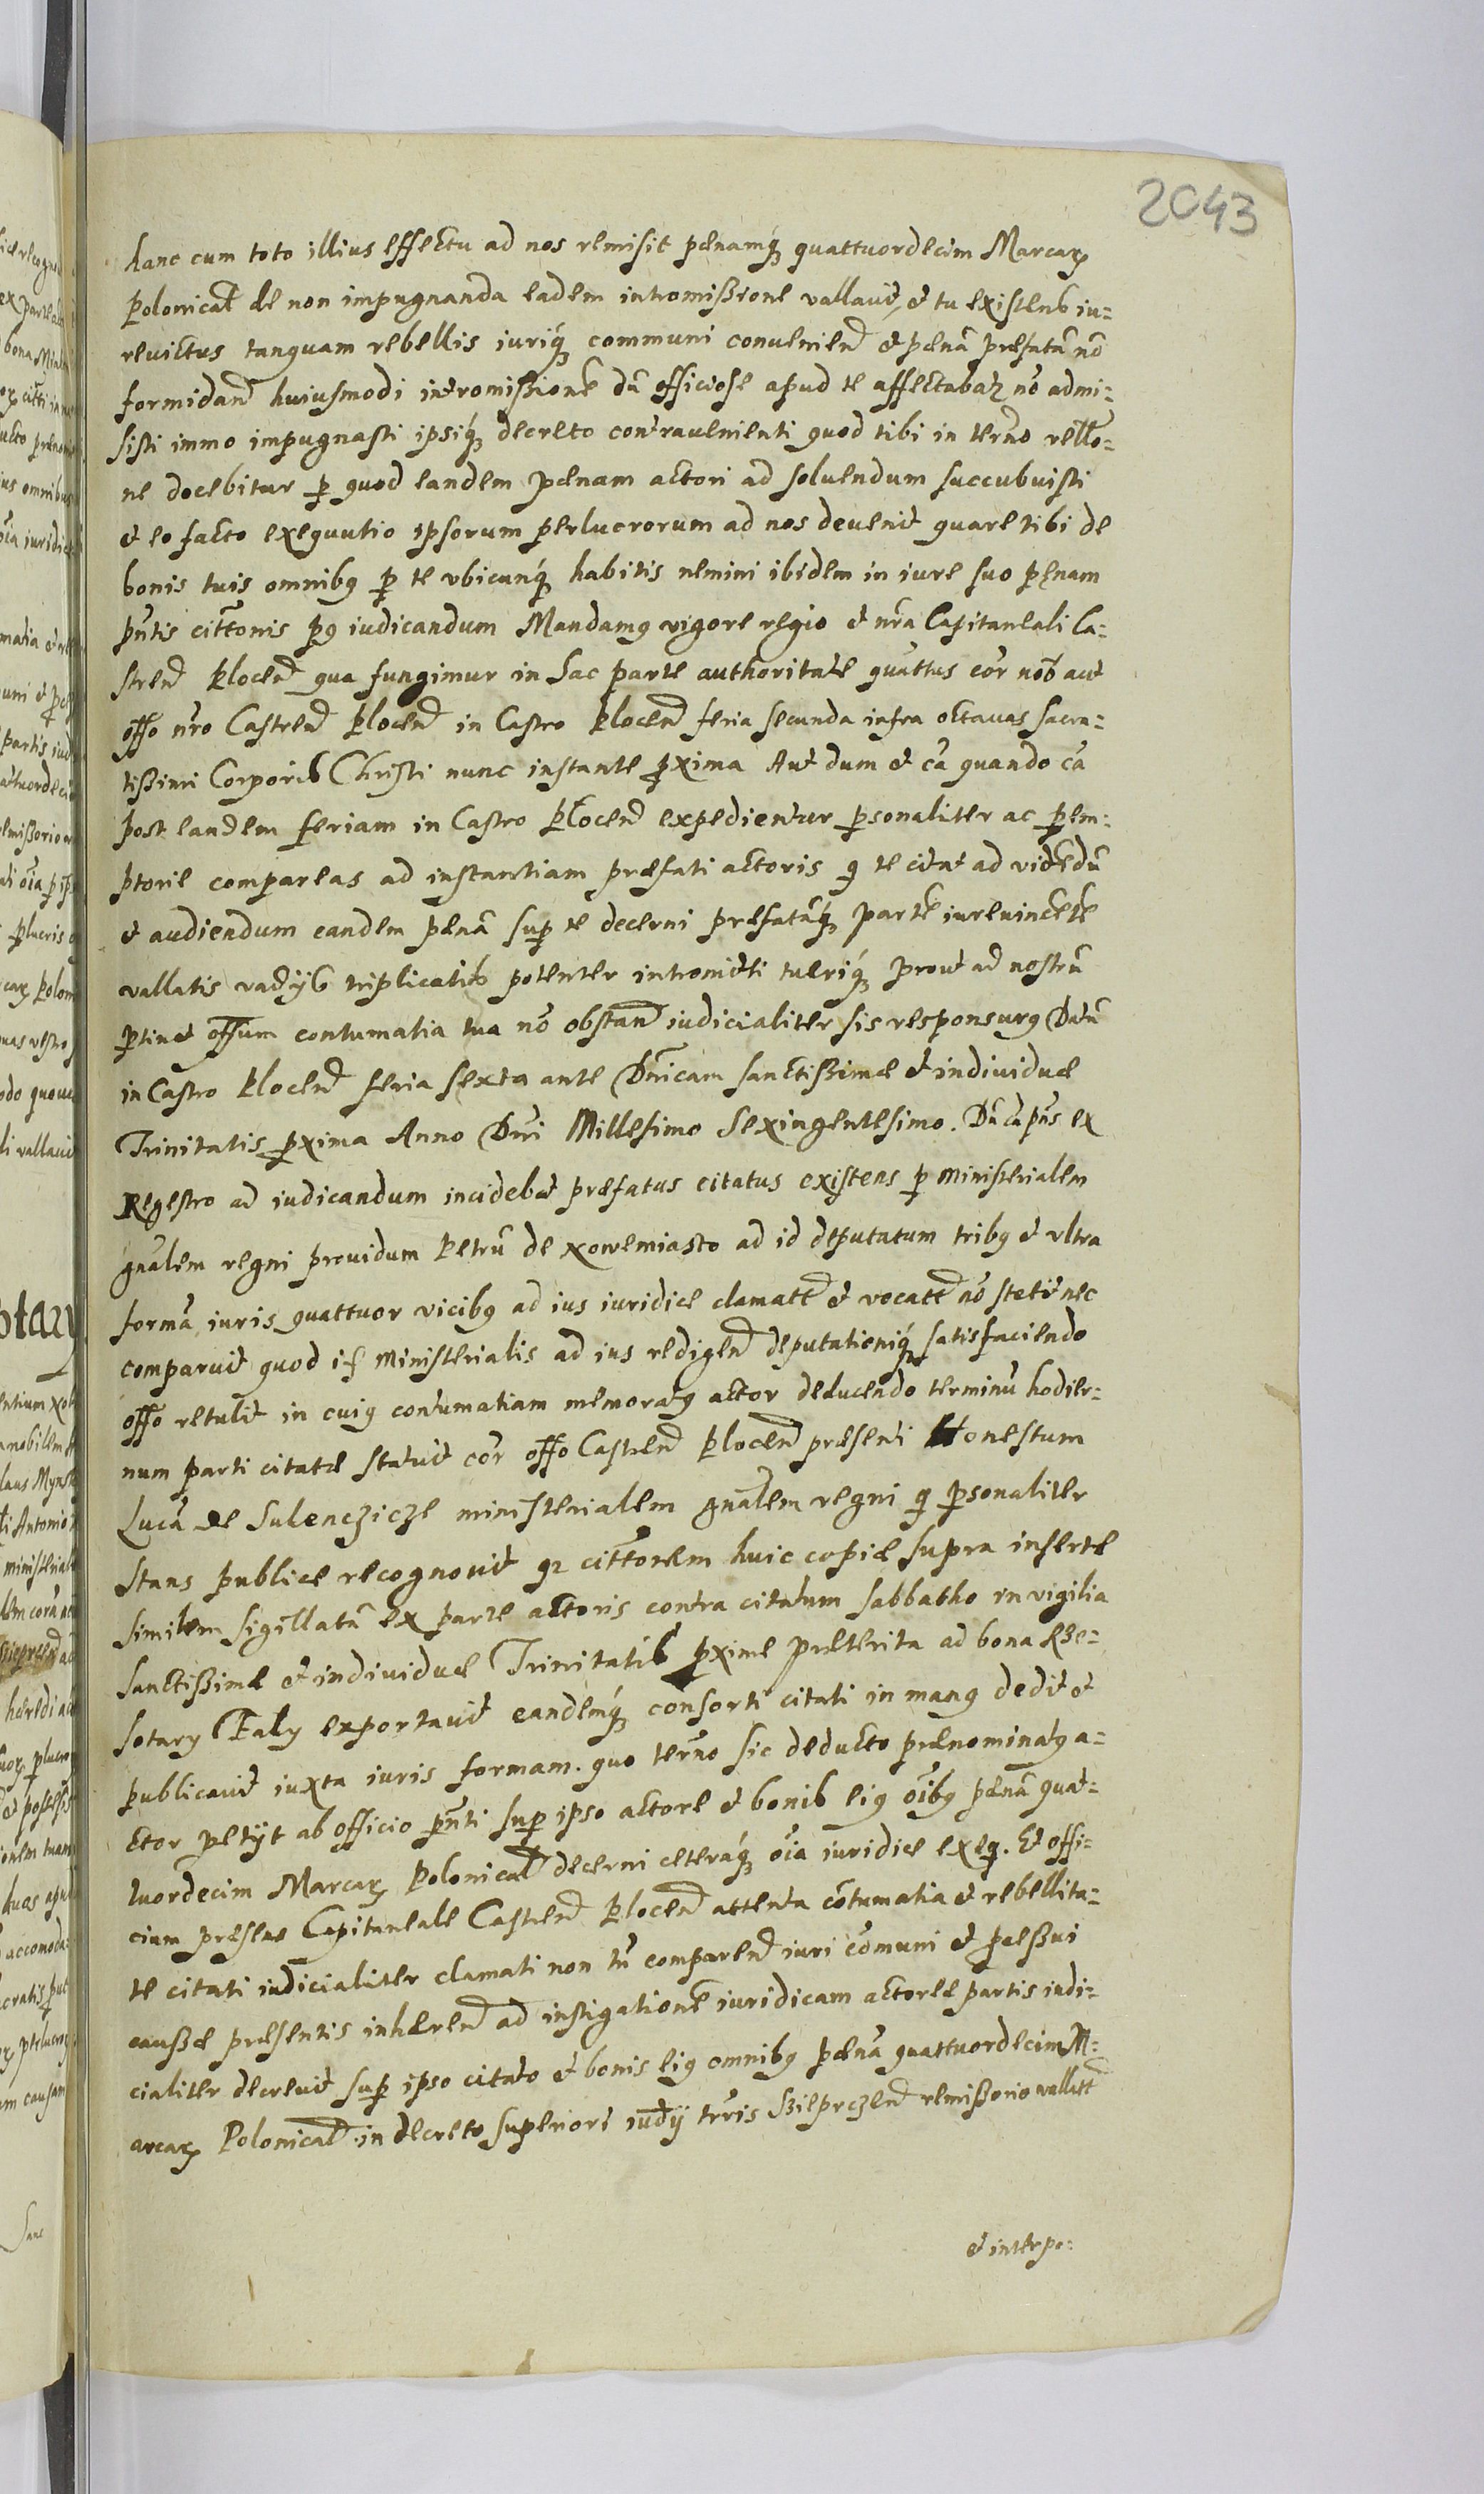 2043
hanc cum toto illius effectu ad nos remisit pœnamq́ꝫ quattuordecim Marcaꝝ
Polonicał de non impugnanda eadem intromißione vallavit, et tu existens iu-
reuictus tanquam rebellis iuriq́ꝫ communi conuenien̄ et pœnā præfatā nō
formidan̄ huiusmodi intromißionē dū officiose apud te affectabaꝉ nō admi-
sisti immo impugnasti ipsiq́ꝫ decreto contrauenienti quod tibi in ter̄no rello-
ne docebitur ꝑ quod eandem pœnam actori ad soluendum succubuisti
et eo facto exequutio ipsorum perlucrorum ad nos deuenit quare tibi de
bonis tuis omnibꝯ ꝑ te vbicunq́ꝫ habitis nemini ibidem in iure suo pęnam
pn̄tis citt̄onis pꝯ iudicandum Mandamꝯ vigore regio et nr̄a Capitaneali Ca-
stren̄ Plocen̄ qua fungimur in hac parte authoritate quattus cor̄ nob̄ aut
off̄o nr̄o Castren̄ Plocen̄ in Castro Plocen̄ feria secunda infra octauas sacra-
tißimi Corporis Christi nunc instante ꝓxima Aut dum et cā quando cā
post eandem feriam in Castro Plocen̄ expedientur ꝑsonaliter ac ꝑem-
ptorie compareas ad instantiam præfati actoris ꝗ te citat ad videdū
et audiendum eandem pœnā suꝑ te decerni præfatāq́ꝫ partē iureuincētē
vallatis vadijs triplicatis potenter intromitti tueriq́ꝫ prout ad nostrū
ꝑtinet off̄ium contumatia tua nō obstan̄ iudicialiter sis responsurꝯ Datū
in Castro Plocen̄ feria sexta ante Dn̄icam sanctißimæ et individuæ
Trinitatis ꝓxima Anno Dn̄i Millesimo Sexingentesimo. Dū cā pn̄s ex
Regestro ad iudicandum incidebat præfatus citatus existens ꝑ ministerialem
gn̄alem regni prouidum Petrū de Nowemiasto ad id deputatum tribꝯ et vltra
formā iuris quattuor vicibꝯ ad ius iuridice clamatt̄ et vocatt̄ nō stetit nec
comparuit quod is ministerialis ad ius redigen̄ deputationiq́ꝫ satisfaciendo
off̄o retulit in cuiꝯ contumatiam memoratꝯ actor deducendo terminū hodier-
num parti citatæ statuit cor̄ off̄o Castren̄ Plocen̄ præsenti Honestum
Lucā de Sulencziczе ministerialem gn̄alem regni ꝗ ꝑsonaliter
stans publice recognouit ꝗꝛ citt̄onem huic copiæ supra insertæ
similem sigillatā ex parte actoris contra citatum sabbatho in vigilia
sanctißimæ et individuæ Trinitatis ꝓxime præterita ad bona Rze-
sotary Faly exportauit eandemq́ꝫ consorti citati in manꝯ dedit et
publicauit iuxta iuris formam. quo ter̄no sic deducto prænominatꝯ a-
ctor petijt ab officio pn̄ti suꝑ ipso actore et bonis eiꝯ oībꝯ pœnā quat-
tuordecim Marcaꝝ Polonicał decerni ceteraq́ꝫ oīa iuridice exeq̄. Et offi-
cium præsens Capitaneale Castren̄ Plocen̄ attenta cōtumatia et rebellita-
te citati iudicialiter clamati non tn̄ comparen̄ iuri cōmuni et ꝓceßui
caußæ præsentis inhæren̄ ad instigationē iuridicam actoreæ partis iudi-
cialiter decreuit suꝑ ipso citato et bonis eiꝯ omnibꝯ pœnā quattuordecim M-
arcaꝝ Polonicał in decreto superiori iudij trr̄is Szieprczen̄ remißorio vallatt̄
et interpo-